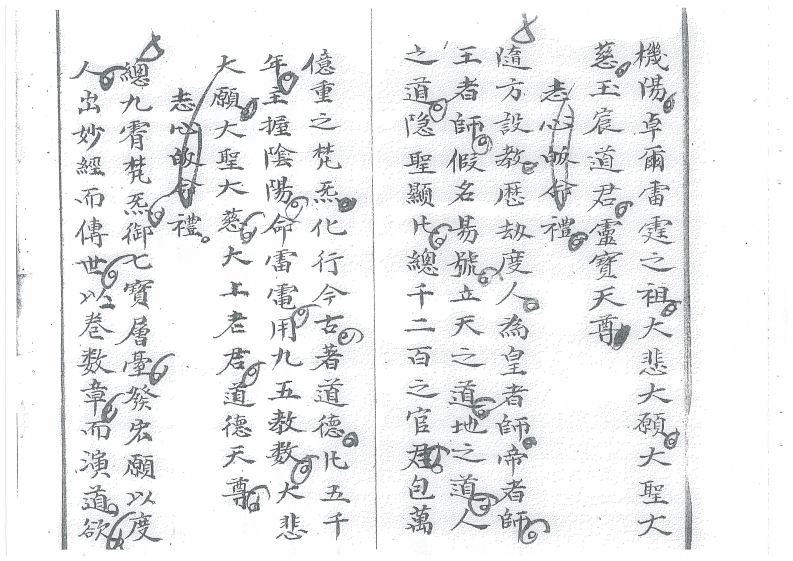 機陽卓爾雷霆之祖大悲大願大聖大
慈玉宸道君靈寶天尊
志心皈命禮
隨方設教歷劫度人為皇者師帝者師
王者師假名易號立天之道地之道人
之道隐聖顯凡總千二百之官君包萬
億重之梵炁化行今古著道德凡五千
年主握陰陽命雷電用九五教数大悲
大願大聖大慈大上老君道德天尊
志心皈命禮
總九霄梵炁御七寶層臺發宏願以度
人出妙經而傳世以卷数章而演道欲